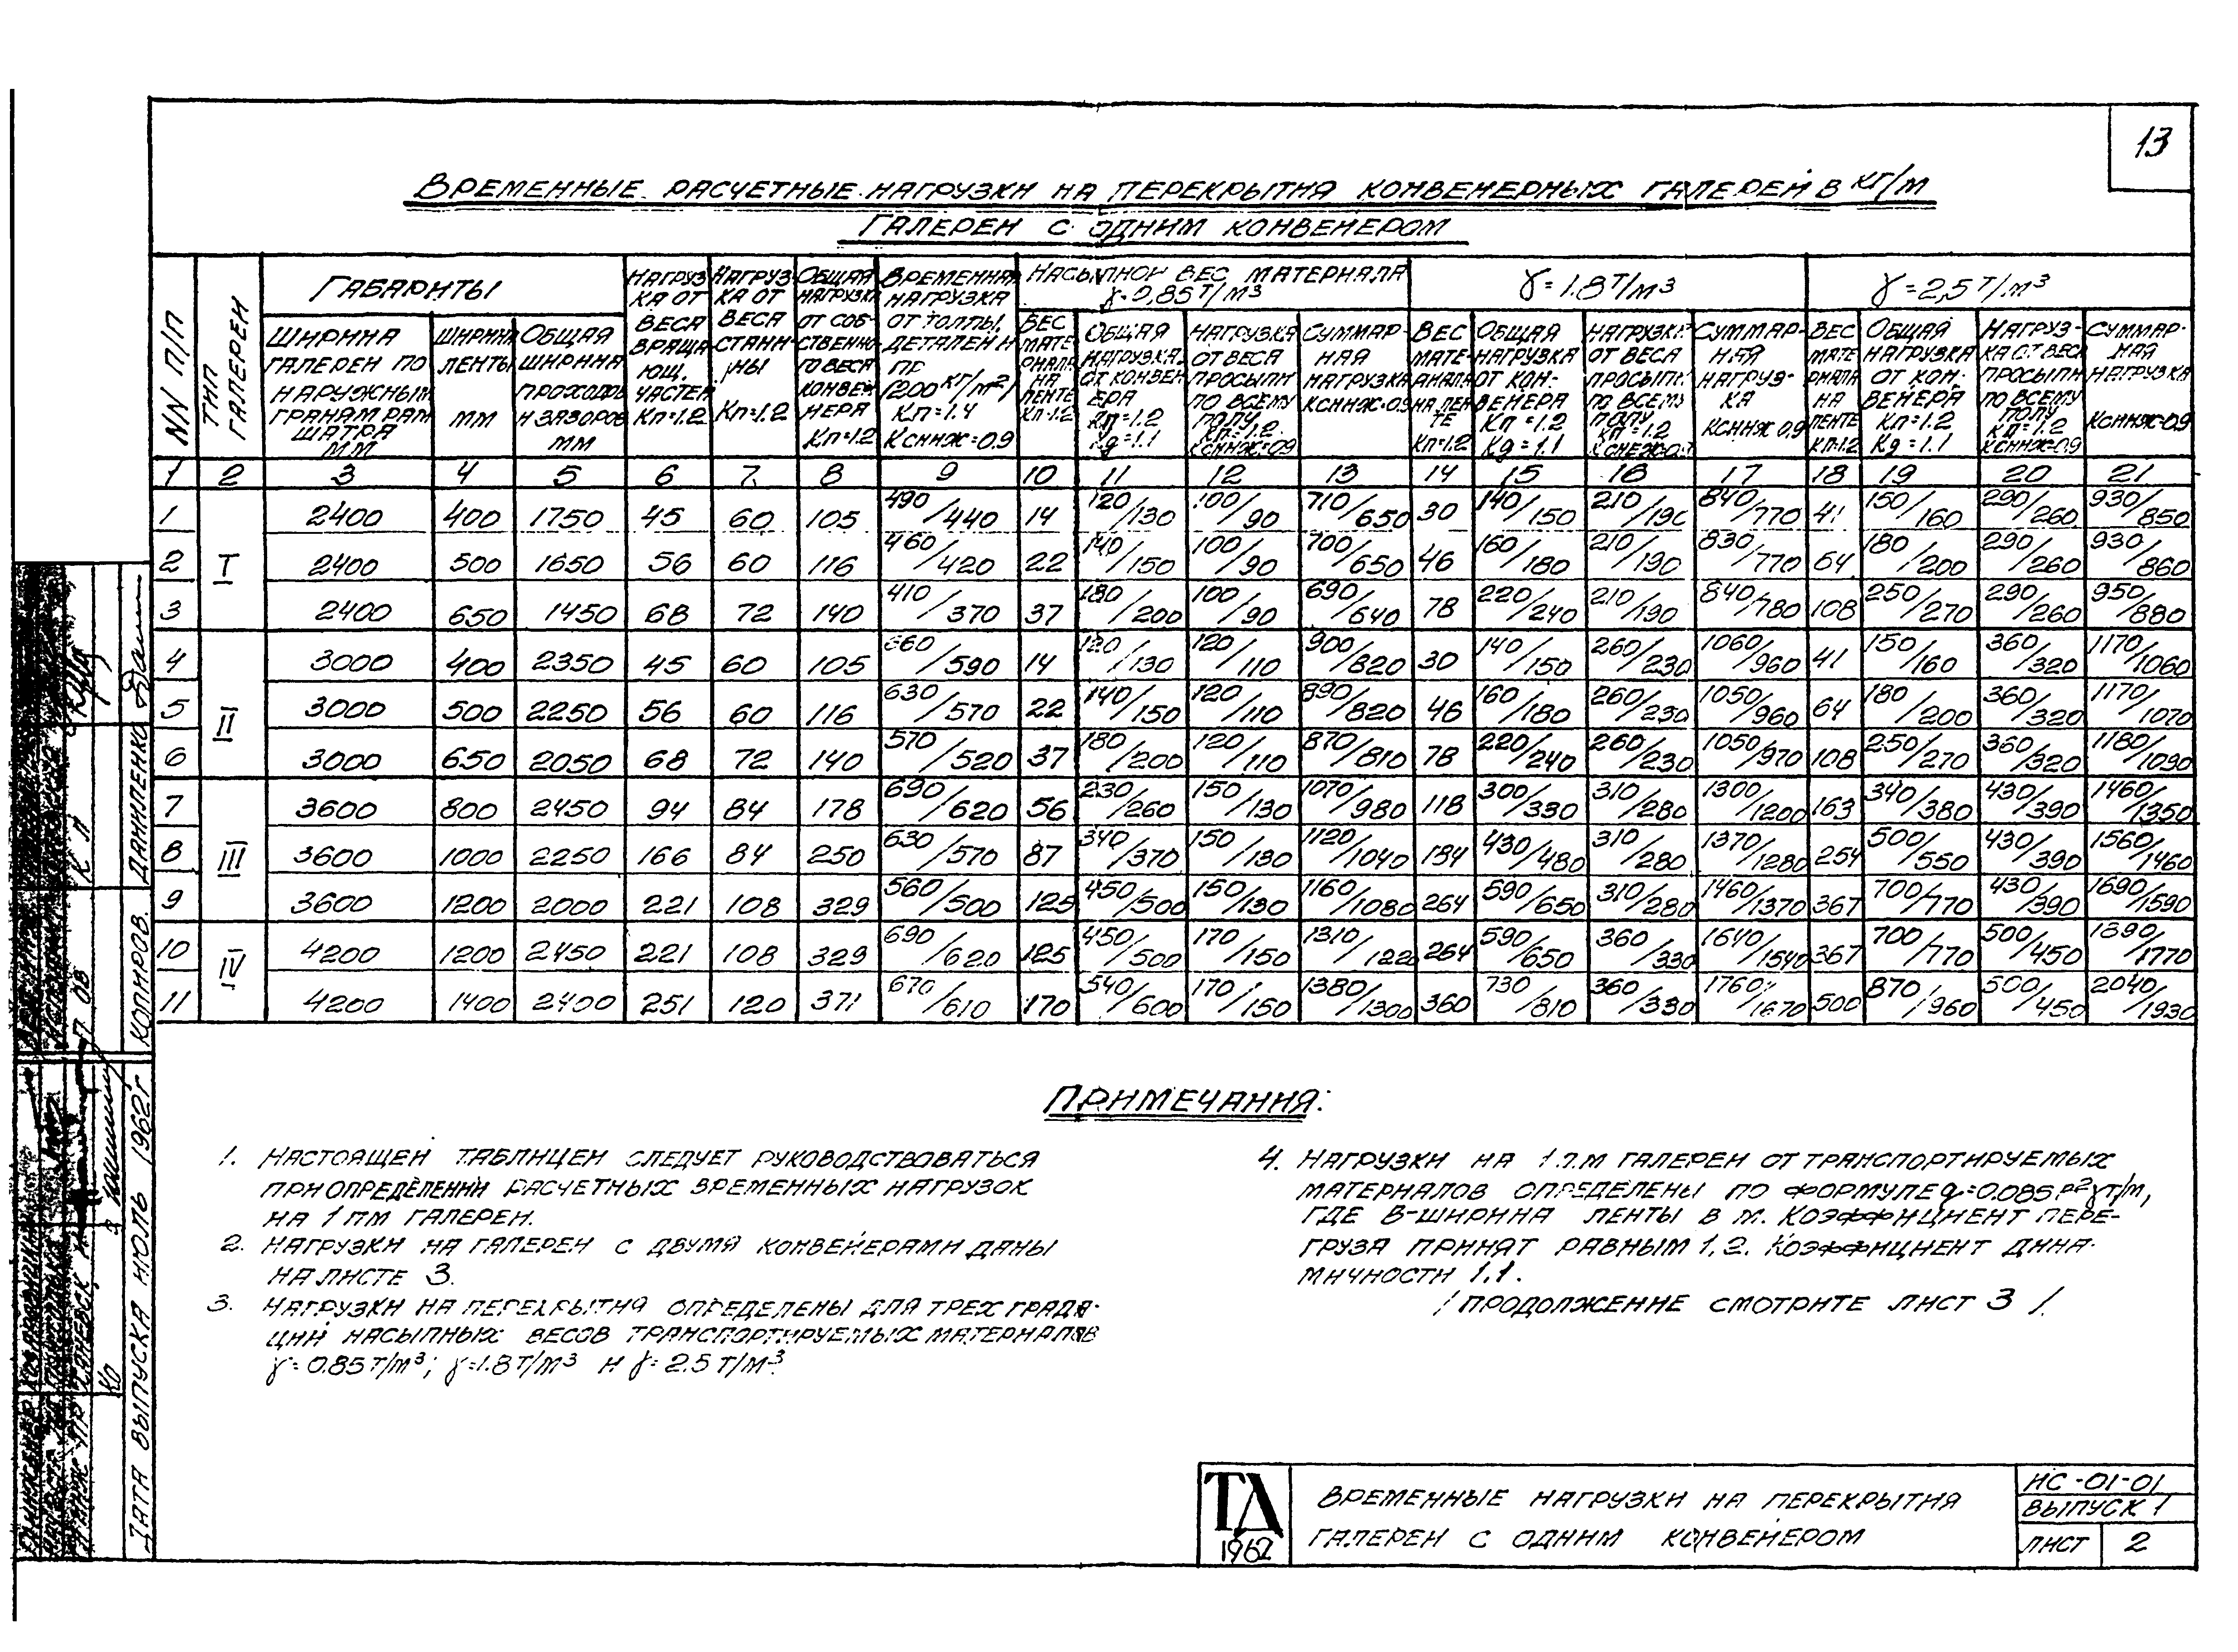 13
ВРЕМЕННЫЕ РАСЧЕТНЫЕ НАГРУЗКИ НА ПЕРЕКРЫТИЯ КОНВЕЙЕРНЫХ ГАЛЕРЕЙ В КГ/М
ГАЛЕРЕИ С ОДНИМ КОНВЕЙЕРОМ
NN П/П
ТИП ГАЛЕРЕИ
ГАБАРИТЫ
ШИРИНА ГАЛЕРЕИ ПО НАРУЖНЫМ ГРАНЯМ РАМ ШАТРА ММ
ШИРИНА ЛЕНТЫ ММ
ОБЩАЯ ШИРИНА ПРОХОДОВ И ЗАЗОРОВ ММ
НАГРУЗКА ОТ ВЕСА ВРАЩАЮЩ. ЧАСТЕЙ Кп=1.2
НАГРУЗКА ОТ ВЕСА СТАНИНЫ Кп=1.2
ОБЩАЯ НАГРУЗКА ОТ СОБСТВЕННОГО ВЕСА КОНВЕЙЕРА Кп=1.2
ВРЕМЕННАЯ НАГРУЗКА ОТ ТОЛПЫ, ДЕТАЛЕЙ И ПР (200 КГ/М²) Кп=1.4 Ксниж=0.9
НАСЫПНОЙ ВЕС МАТЕРИАЛА γ=0,85 Т/М3
ВЕС МАТЕРИАЛА НА ЛЕНТЕ Кп=1.2
ОБЩАЯ НАГРУЗКА ОТ КОНВЕЙЕРА Кп=1.2 Кg=1.1
НАГРУЗКА ОТ ВЕСА ПРОСЫПИ ПО ВСЕМУ ПОЛУ Кп=1.2 Ксниж=0.9
СУММАРНАЯ НАГРУЗКА Ксниж=0.9
γ=1.8 Т/М3
ВЕС МАТЕРИАЛА НА ЛЕНТЕ Кп=1.2
ОБЩАЯ НАГРУЗКА ОТ КОНВЕЙЕРА Кп=1.2 Кg=1.1
НАГРУЗКА ОТ ВЕСА ПРОСЫПИ ПО ВСЕМУ ПОЛУ Кп=1.2
СУММАРНАЯ НАГРУЗКА Ксниж 0.9
γ=2,5 Т/М3
ВЕС МАТЕРИАЛА НА ЛЕНТЕ Кп=1.2
ОБЩАЯ НАГРУЗКА ОТ КОНВЕЙЕРА Кп=1.2 Кg=1.1
НАГРУЗКА ОТ ВЕСА ПРОСЫПИ ПО ВСЕМУ ПОЛУ Кп=1.2 Ксниж=0.9
СУММАРНАЯ НАГРУЗКА Ксниж=0.9
1 2 3 4 5 6 7 8 9 10 11 12 13 14 15 16 17 18 19 20 21
1 I 2400 400 1750 45 60 105 490/440 14 120/130 100/90 710/650 30 140/150 210/190 840/770 41 150/160 290/260 930/850
2 2400 500 1650 56 60 116 460/420 22 140/150 100/90 700/650 46 160/180 210/190 830/770 64 180/200 290/260 930/860
3 2400 650 1450 68 72 140 410/370 37 180/200 100/90 690/640 78 220/240 210/190 840/780 108 250/270 290/260 950/880
4 II 3000 400 2350 45 60 105 660/590 14 120/130 120/110 900/820 30 140/150 260/230 1060/960 41 150/160 360/320 1170/1060
5 3000 500 2250 56 60 116 630/570 22 140/150 120/110 890/820 46 160/180 260/230 1050/960 64 180/200 360/320 1170/1070
6 3000 650 2050 68 72 140 570/520 37 180/200 120/110 870/810 78 220/240 260/230 1050/970 108 250/270 360/320 1180/1090
7 III 3600 800 2450 94 84 178 690/620 56 230/260 150/130 1070/980 118 300/330 310/280 1300/1200 163 340/380 430/390 1460/1350
8 3600 1000 2250 166 84 250 630/570 87 340/370 150/130 1120/1040 184 430/480 310/280 1370/1280 254 500/550 430/390 1560/1460
9 3600 1200 2000 221 108 329 560/500 125 450/500 150/130 1160/1080 264 590/650 310/280 1460/1370 367 700/770 430/390 1690/1590
10 IV 4200 1200 2450 221 108 329 690/620 125 450/500 170/150 1310/122 264 590/650 360/330 1640/1540 367 700/770 500/450 1890/1770
11 4200 1400 2400 251 120 371 670/610 170 540/600 170/150 1380/1300 360 730/810 360/330 1760/1670 500 870/960 500/450 2040/1930
ПРИМЕЧАНИЯ:
1. НАСТОЯЩЕЙ ТАБЛИЦЕЙ СЛЕДУЕТ РУКОВОДСТВОВАТЬСЯ
ПРИ ОПРЕДЕЛЕНИИ РАСЧЕТНЫХ ВРЕМЕННЫХ НАГРУЗОК
НА 1 ПМ ГАЛЕРЕИ.
2. НАГРУЗКИ НА ГАЛЕРЕИ С ДВУМЯ КОНВЕЙЕРАМИ ДАНЫ
НА ЛИСТЕ 3.
3. НАГРУЗКИ НА ПЕРЕКРЫТИЯ ОПРЕДЕЛЕНЫ ДЛЯ ТРЕХ ГРАДА-
ЦИЙ НАСЫПНЫХ ВЕСОВ ТРАНСПОРТИРУЕМЫХ МАТЕРИАЛОВ
γ=0.85 Т/М3; γ=1.8 Т/М3 И γ=2.5 Т/М3.
4. НАГРУЗКИ НА 1 П.М ГАЛЕРЕИ ОТ ТРАНСПОРТИРУЕМЫХ
МАТЕРИАЛОВ ОПРЕДЕЛЕНЫ ПО ФОРМУЛЕ q=0.085 B²γ Т/М,
ГДЕ В-ШИРИНА ЛЕНТЫ В М. КОЭФФИЦИЕНТ ПЕРЕ-
ГРУЗА ПРИНЯТ РАВНЫМ 1,2. КОЭФФИЦИЕНТ ДИНА-
МИЧНОСТИ 1,1.
/ ПРОДОЛЖЕНИЕ СМОТРИТЕ ЛИСТ 3 /.
ДАТА ВЫПУСКА ИЮЛЬ 1962 Г.
КОПИРОВ. ДАНИЛЕНКО
ТД
1962
ВРЕМЕННЫЕ НАГРУЗКИ НА ПЕРЕКРЫТИЯ
ГАЛЕРЕИ С ОДНИМ КОНВЕЙЕРОМ
ИС-01-01
ВЫПУСК 1
ЛИСТ 2